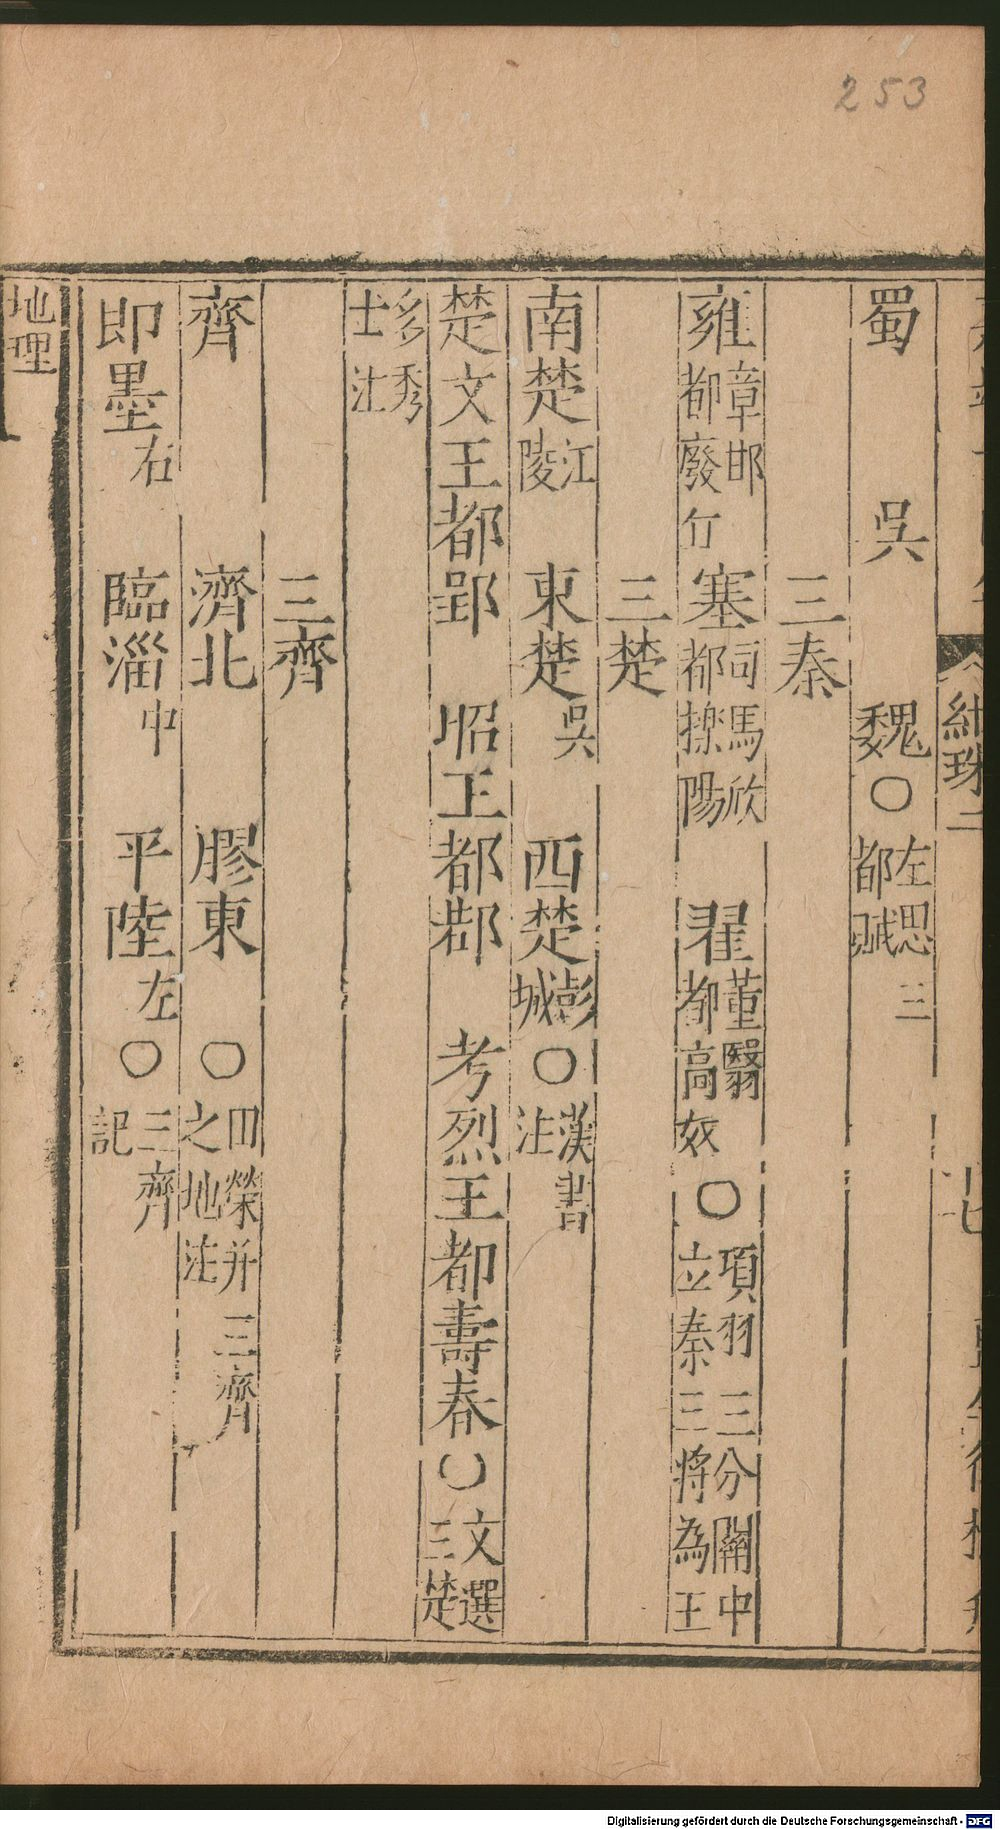 253
紺珠二
蜀 吳 魏○左思三都賦
三秦
雍章邯都廢丘 塞司馬欣都櫟陽 翟董翳都高奴○項羽三分關中立秦三將為王
三楚
南楚江陵 東楚吳 西楚彭城○漢書注
楚文王都郢 昭王都鄀 考烈王都壽春○文選三楚
多秀士注
三齊
齊 濟北 膠東○田榮并三齊之地注
即墨右 臨淄中 平陸左○三齊記
地理
Digitalisierung gefördert durch die Deutsche Forschungsgemeinschaft - DFG